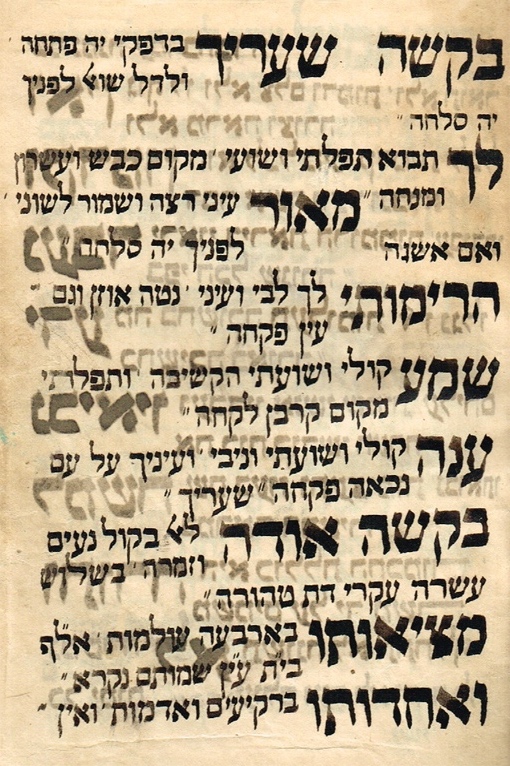 בקשה שעריך בדפקי יה פתחה
ולדל שוא לפניך
יה סלחה "
לך תבוא תפלתי ושועי ' מקום כבש ועשרון
ומנחה " מאור עיני רצה ושמור לשוני '
ואם אשגה לפניך יה סלחה "
הרימותי לך לבי ועיני ' נטה אוזן וגם
עין פקחה "
שמע קולי ושועתי הקשיבה ' ותפלתי
מקום קרבן לקחה "
ענה קולי ושועתי וניבי ' ועיניך על עם
נכאה פקחה " שעריך "
בקשה אודה לא בקול נעים
וזמרה ' בשלוש
עשרה עקרי דת טהורה "
מציאותו בארבעה עולמות ' אלף
בית עין שמותם נקרא "
ואחדותו ברקיעים ואדמות ' ואין "